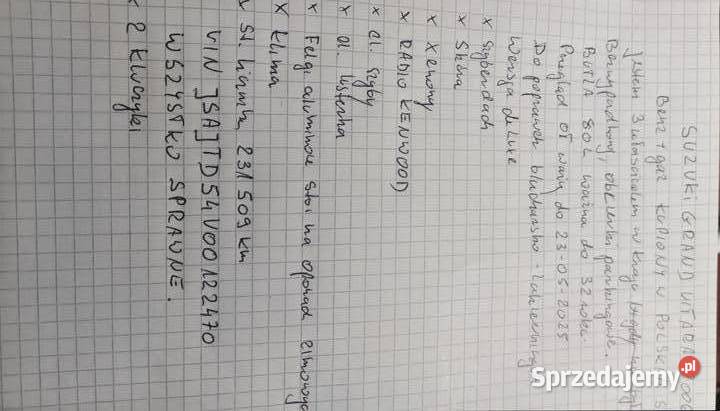 SUZUKI GRAND VITARA
Benz + gaz KUPIONY W POLSKI
jestem 3 właścicielem w kraju
Bezwypadkowy, obcierki parkingowe.
BUTLA 80L ważna do 32 roku
Przegląd OT ważny do 23-05-2025
Do poprawek blacharsko - lakierniczy
Wersja deluxe
x Szyberdach
x Skóra
x Xenony
x RADIO KENWOOD
x el. szyby
x el. lusterka
x Felgi aluminiowe stoi na oponach zimowych
x klima
x St. licznika 231 509 km
VIN JSAJTD54V00122470
WSZYSTKO SPRAWNE.
x 2 kluczyki
Sprzedajemy.pl